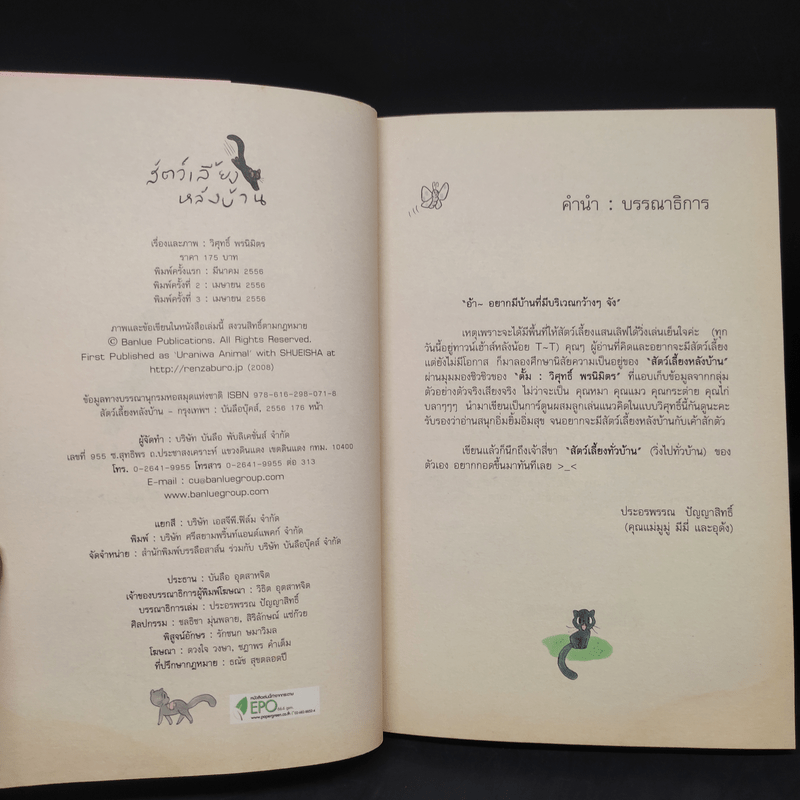 สัตว์เลี้ยง
หลังบ้าน
เรื่องและภาพ : วิศุทธิ์ พรนิมิตร
ราคา 175 บาท
พิมพ์ครั้งแรก : มีนาคม 2556
พิมพ์ครั้งที่ 2 : เมษายน 2556
พิมพ์ครั้งที่ 3 : เมษายน 2556
ภาพและข้อเขียนในหนังสือเล่มนี้ สงวนสิทธิ์ตามกฎหมาย
© Banlue Publications. All Rights Reserved.
First Published as 'Uraniwa Animal' with SHUEISHA at
http://renzaburo.jp (2008)
ข้อมูลทางบรรณานุกรมหอสมุดแห่งชาติ ISBN 978-616-298-071-8
สัตว์เลี้ยงหลังบ้าน - กรุงเทพฯ : บันลือบุ๊คส์, 2556 176 หน้า
ผู้จัดทำ : บริษัท บันลือ พับลิเคชั่นส์ จำกัด
เลขที่ 955 ซ.สุทธิพร ถ.ประชาสงเคราะห์ แขวงดินแดง เขตดินแดง กทม. 10400
โทร. 0-2641-9955 โทรสาร 0-2641-9955 ต่อ 313
E-mail : cu@banluegroup.com
www.banluegroup.com
แยกสี : บริษัท เอสจีพี.ฟิล์ม จำกัด
พิมพ์ : บริษัท ศรีสยามพริ้นท์แอนด์แพคก์ จำกัด
จัดจำหน่าย : สำนักพิมพ์บรรลือสาส์น ร่วมกับ บริษัท บันลือบุ๊คส์ จำกัด
ประธาน : บันลือ อุตสาหจิต
เจ้าของบรรณาธิการผู้พิมพ์โฆษณา : วิธิต อุตสาหจิต
บรรณาธิการเล่ม : ประอรพรรณ ปัญญาสิทธิ์
ศิลปกรรม : ชลธิชา มุ่นพลาย, สิริลักษณ์ แซ่ก๊วย
พิสูจน์อักษร : รักชนก ษมาวิมล
โฆษณา : ดวงใจ วงษา, ชฎาพร คำเต็ม
ที่ปรึกษากฎหมาย : ธณัช สุขตลอดปี
หนังสือเล่มนี้ทำจากกระดาษ
EPO
คำนำ : บรรณาธิการ
"อ้า~ อยากมีบ้านที่มีบริเวณกว้างๆ จัง"
เหตุเพราะจะได้มีพื้นที่ให้สัตว์เลี้ยงแสนเลิฟได้วิ่งเล่นเย็นใจค่ะ (ทุก
วันนี้อยู่ทาวน์เฮ้าส์หลังน้อย T~T) คุณๆ ผู้อ่านที่คิดและอยากจะมีสัตว์เลี้ยง
แต่ยังไม่มีโอกาส ก็มาลองศึกษานิสัยความเป็นอยู่ของ "สัตว์เลี้ยงหลังบ้าน"
ผ่านมุมมองชิวชิวของ "ตั้ม : วิศุทธิ์ พรนิมิตร" ที่แอบเก็บข้อมูลจากกลุ่ม
ตัวอย่างตัวจริงเสียงจริง ไม่ว่าจะเป็น คุณหมา คุณแมว คุณกระต่าย คุณไก่
บลาๆๆๆ นำมาเขียนเป็นการ์ตูนผสมลูกเล่นแนวคิดในแบบวิศุทธิ์นี้กันดูนะคะ
รับรองว่าอ่านสนุกอิ่มยิ้มอิ่มสุข จนอยากจะมีสัตว์เลี้ยงหลังบ้านกับเค้าสักตัว
เขียนแล้วก็นึกถึงเจ้าสี่ขา "สัตว์เลี้ยงทั่วบ้าน" (วิ่งไปทั่วบ้าน) ของ
ตัวเอง อยากกอดขึ้นมาทันทีเลย >_<
ประอรพรรณ ปัญญาสิทธิ์
(คุณแม่มูมู่ มีมี่ และอุดัง)